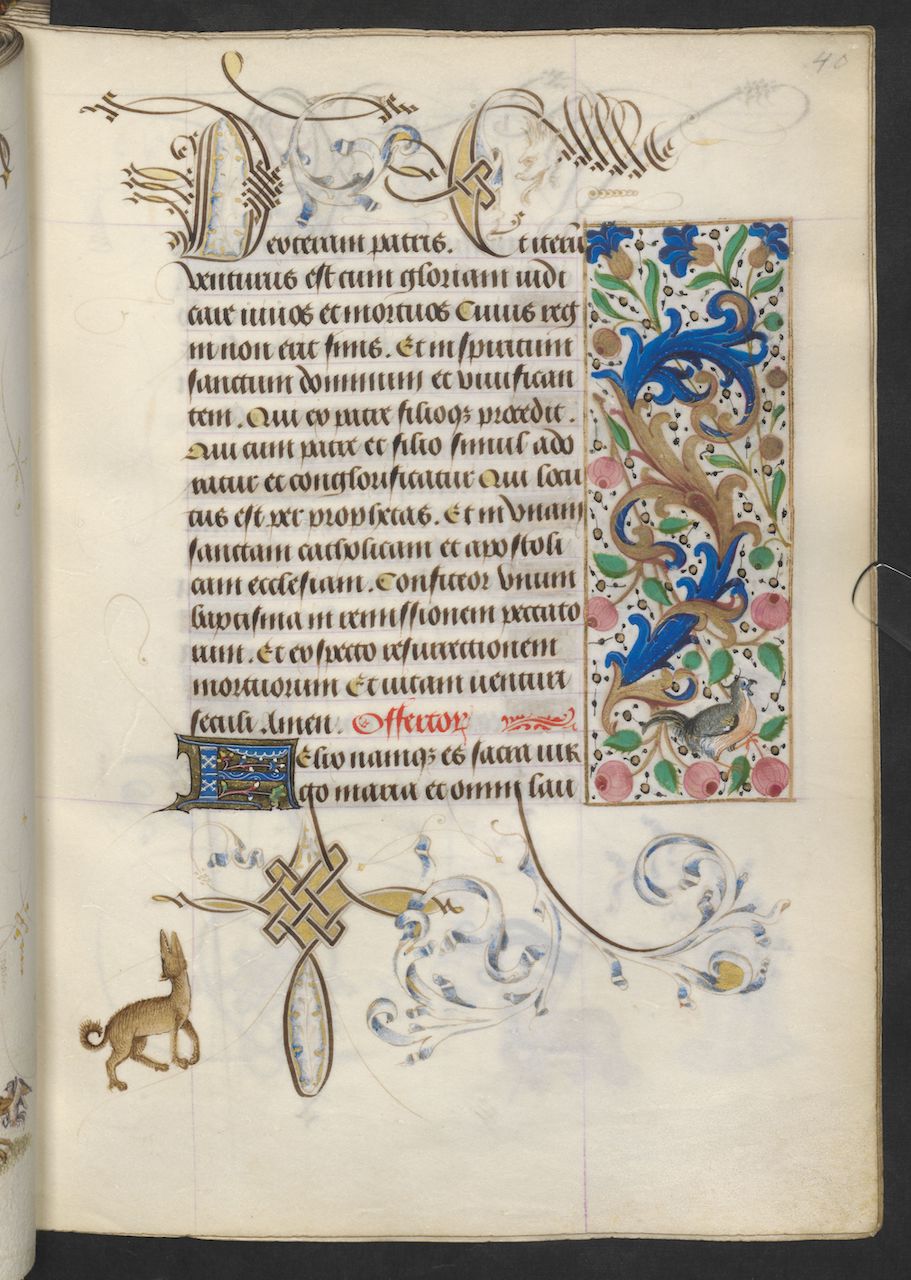 40
Dexteram patris. Et iterū
venturus est cum gloriam iudi
care viuos et mortuos Cuius reg
ni non erit finis. Et in spiritum
sanctum dominum et viuifican
tem. Qui ex patre filioqꝫ procedit.
Qui cum patre et filio simul ado
ratur et conglorificatur Qui locu
tus est per prophetas. Et in vnam
sanctam catholicam et apostoli
cam ecclesiam. Confiteor vnum
baptisma in remissionem peccato
rum. Et expecto resurrectionem
mortuorum Et uitam uenturi
seculi. Amen. Offertor
Felix namqꝫ es sacra uir
go maria et omni lau